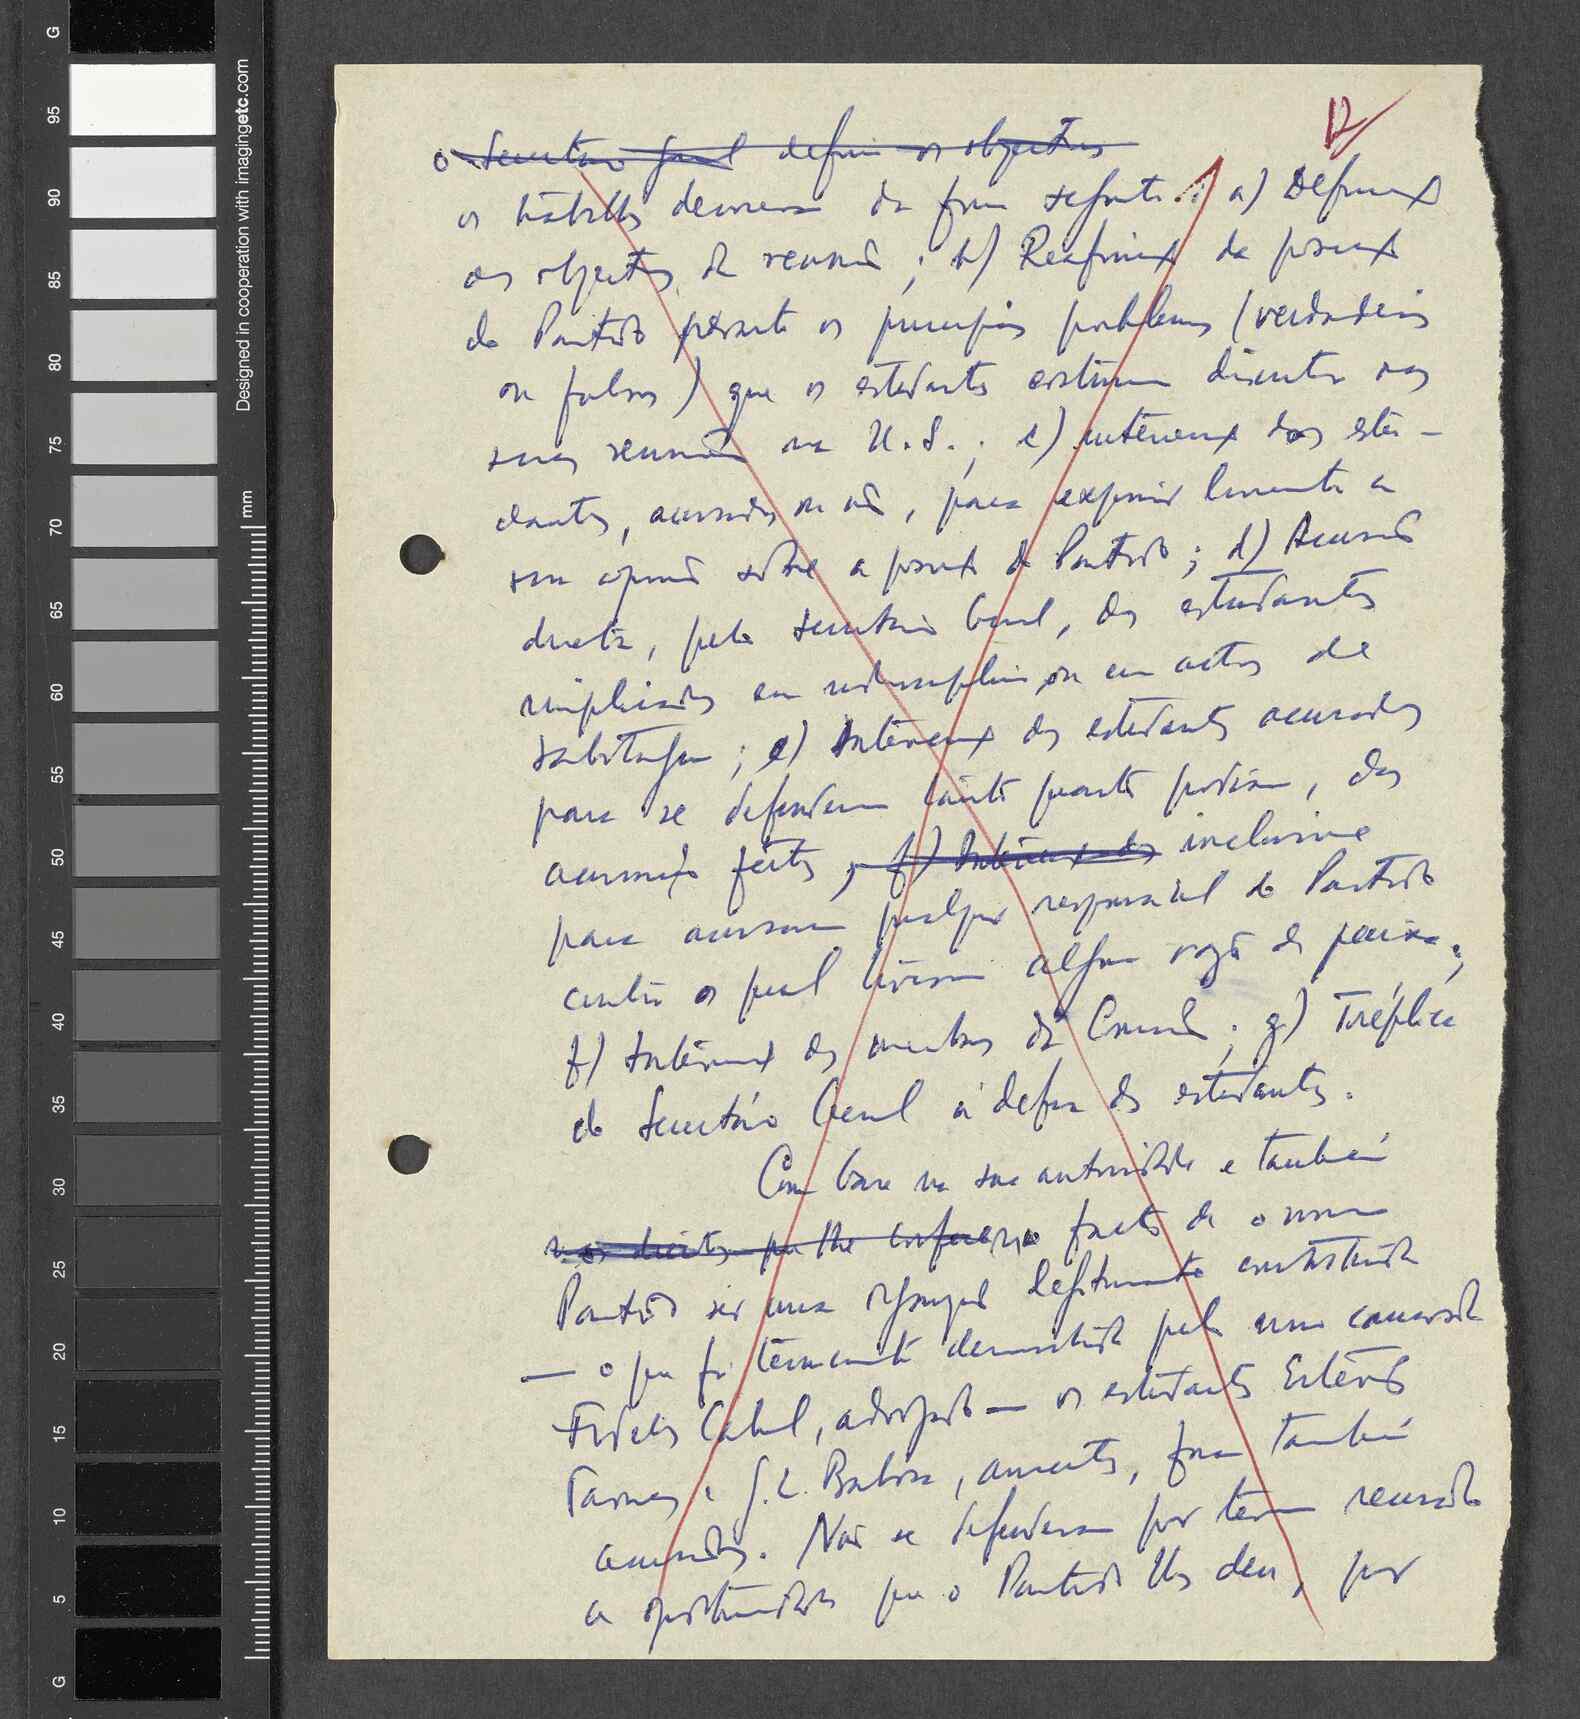 12
o Secretário Geral definiu os objectivos
os trabalhos decorreram da forma seguinte: a) Definição
dos objectivos da reunião; b) Reafirmação da posição
do Partido perante os principais problemas (verdadeiros
ou falsos) que os estudantes costumam discutir nas
suas reuniões na U.S.; c) intervenção dos estu-
dantes, acusados ou não, para exprimir livremente a
sua opinião sobre a posição do Partido; d) Acusação
directa, pelo Secretário Geral, dos estudantes
implicados em indisciplina ou em actos de
sabotagem; e) Intervenção dos estudantes acusados
para se defenderem tanto quanto podiam, das
acusações feitas; f) Intervenção dos inclusive
para acusarem qualquer responsável do Partido
contra o qual tivessem alguma razão de queixa;
f) Intervenção dos membros da Comissão; g) Tréplica
do Secretário Geral à defesa dos estudantes.
Com base na sua autoridade e também
nos direitos que lhe confere no facto de o nosso
Partido ser uma organização legitimamente constituída
— o que foi claramente demonstrado pelo nosso camarada
Fidelis Cabral, advogado — os estudantes Estêvão
Tavares e J.L. Barbosa, ausentes, foram também
acusados. Não se defenderam por terem recusado
a oportunidade que o Partido lhes deu, por
Designed in cooperation with imagingetc.com
mm
G
95
90
85
80
75
70
65
60
55
50
45
40
35
30
25
20
15
10
5
G